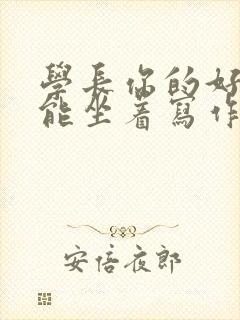 學長你的好
能坐着寫作
安倍夜郎